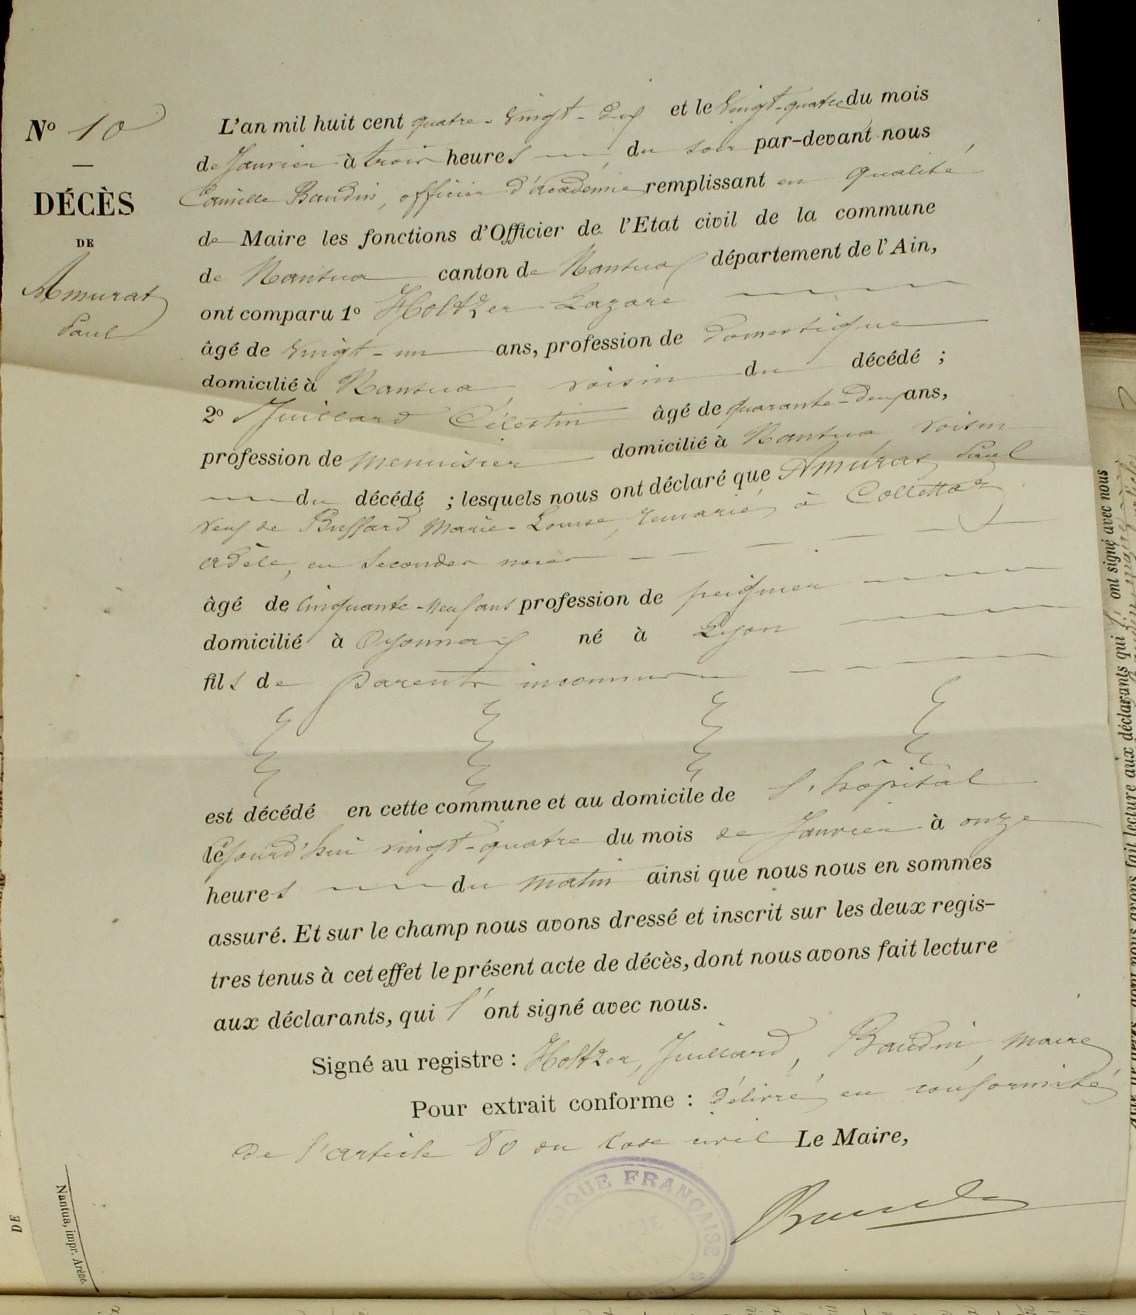 Nº 10
DÉCÈS
DE
Amurat
Paul
L'an mil huit cent quatre-vingt-dix et le vingt-quatre du mois
de Janvier à trois heures du soir par-devant nous
Camille Baudin, officier d'Académie remplissant en qualité
de Maire les fonctions d'Officier de l'Etat civil de la commune
de Nantua canton de Nantua département de l'Ain,
ont comparu 1º Holtzer Lazare
âgé de vingt-un ans, profession de domestique
domicilié à Nantua voisin du décédé ;
2º Juillard Célestin âgé de quarante-deux ans,
profession de menuisier domicilié à Nantua voisin
du décédé ; lesquels nous ont déclaré que Amurat Paul
veuf de Buffard Marie-Louise, remarié à Collettaz
Adèle, en secondes noces
âgé de cinquante-neuf ans profession de peigneur
domicilié à Oyonnax né à Lyon
fils de parents inconnus
est décédé en cette commune et au domicile de l'hôpital
le jourd'hui vingt-quatre du mois de Janvier à onze
heures du matin ainsi que nous nous en sommes
assuré. Et sur le champ nous avons dressé et inscrit sur les deux regis-
tres tenus à cet effet le présent acte de décès, dont nous avons fait lecture
aux déclarants, qui l'ont signé avec nous.
Signé au registre : Holtzer, Juillard, Baudin, maire
Pour extrait conforme : délivré en conformité
de l'article 80 du code civil Le Maire,
Baudin
IQUE FRANÇAISE
Nantua, impr. Arène.
DE
ont signé avec nous
fait lecture aux déclarants qui l'